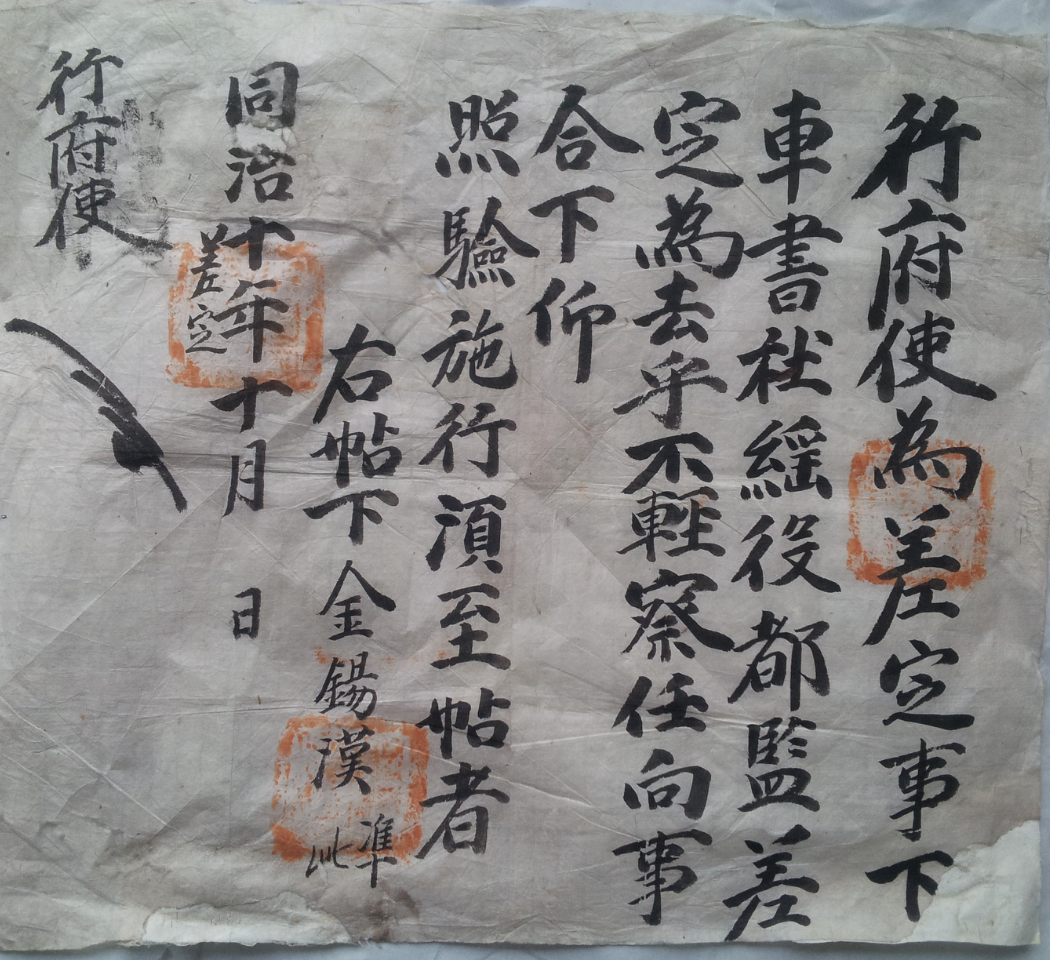 行府使為差定事下
車書社繇役都監差
定為去乎不輕察任向事
合下仰
照驗施行須至帖者
右帖下金錫漢 準此
同治十年十月 日
差定
行府使